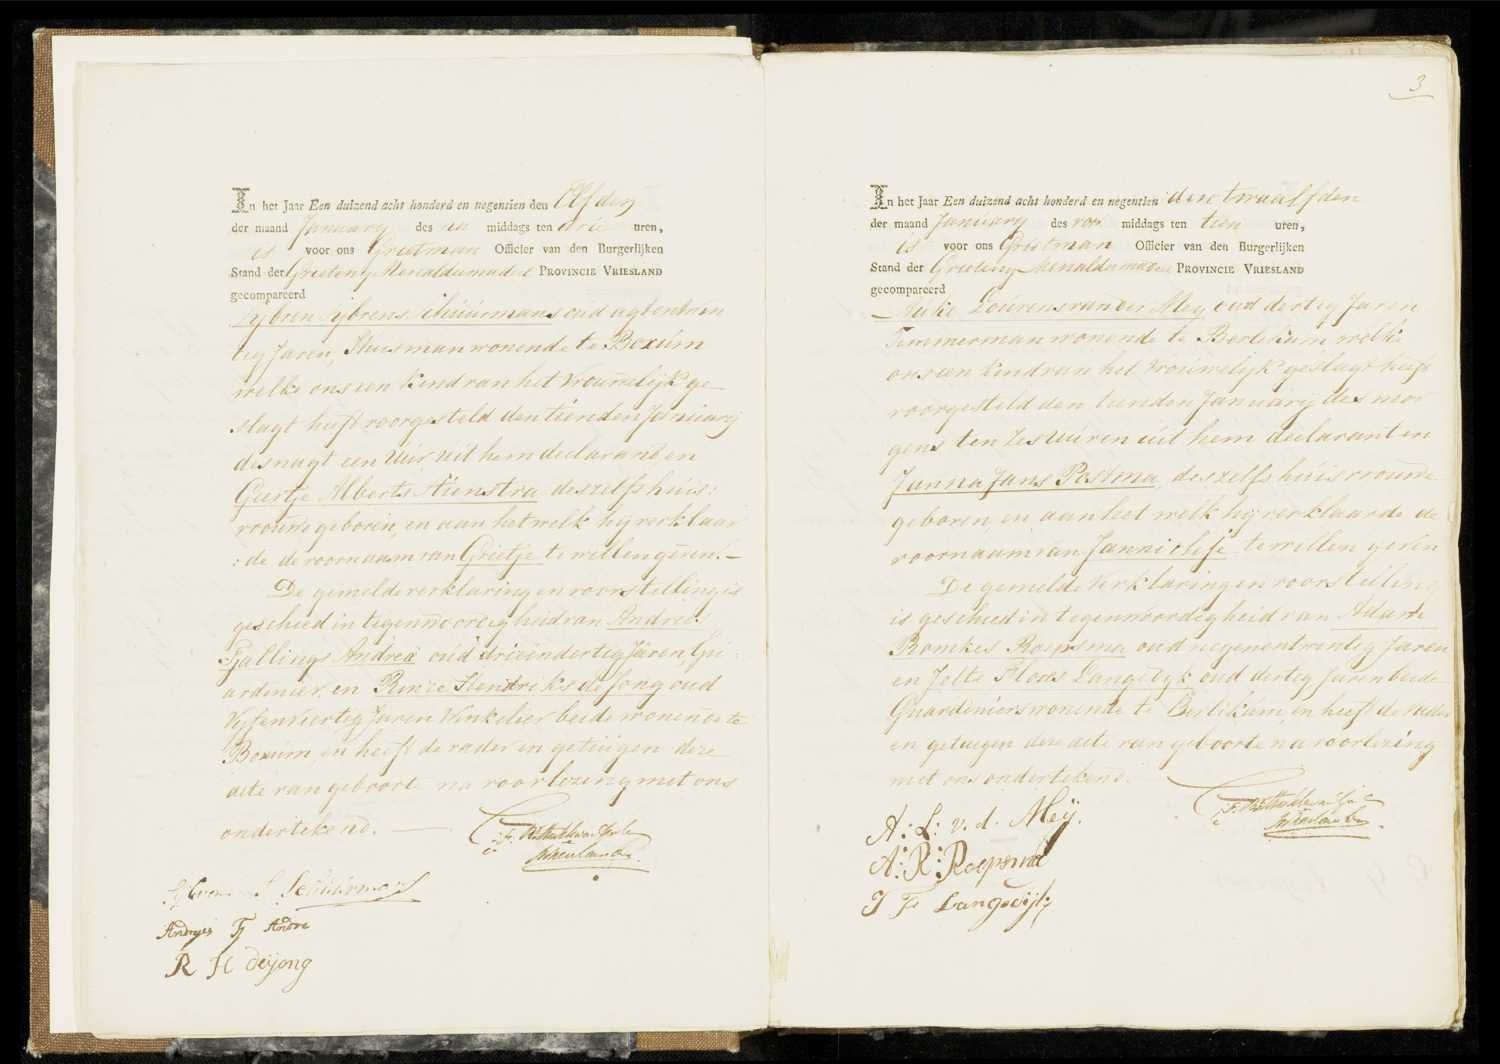 In het Jaar Een duizend acht honderd en negentien den Elfden
der maand January des na middags ten drie uren,
is voor ons Grietman Officier van den Burgerlijken
Stand der Grieteny Menaldumadeel PROVINCIE VRIESLAND
gecompareerd
Sybren Sybrens Schuurmans oud agt en twin
tig Jaren, Huisman wonende te Boxum
welke ons een kind van het Vrouwelijk ge
slagt heeft voorgesteld den tienden January
des nagt een Uur uit hem declarand en
Geertje Alberts Aienstra deszelfs huis:
vrouwe geboren, en aan het welk hij verklaar
:de de voornaam van Grietje te willen geven.—
De gemelde verklaring en voorstelling is
geschied in tegenwoordigheid van Andries
Tjallings Andrea oud drieendertig Jaren, Gu
ardenier, en Rinze Hendriks de Jong oud
Vyfenviertig Jaren Winkelier beide wonende te
Boxum, en heeft de vader en getuigen deze
acte van geboorte na voorlezing met ons
ondertekend. —
Sybren S Schuurmans
Andryes Tj Andre
R H deijong
3
In het Jaar Een duizend acht honderd en negentien den twaalfden
der maand January des voor middags ten tien uren,
is voor ons Grietman Officier van den Burgerlijken
Stand der Grieteny Menaldumadeel PROVINCIE VRIESLAND
gecompareerd
Auke Lourens van der Mey oud dertig Jaren
Timmerman wonende te Berlikum welke
ons een kind van het Vrouwelijk geslagt heeft
voorgesteld den tienden January des mor
gens ten Zes uuren uit hem declarant en
Janna Jans Postma, deszelfs huisvrouwe
geboren, en aan het welk hij verklaarde de
voornaam van Jannichje te willen geven
De gemelde Verklaring en voorstelling
is geschied in tegenwoordigheid van Adam
Romkes Roepsma oud negenentwintig Jaren
en Jelte Floris Langedyk oud dertig Jaren beide
Guardeniers wonende te Berlikum, en heeft de vader
en getuigen deze acte van geboorte na voorlezing
met ons ondertekend.
A: L: v. d. Meÿ.
A: R: Roepsma
J F Langedijk